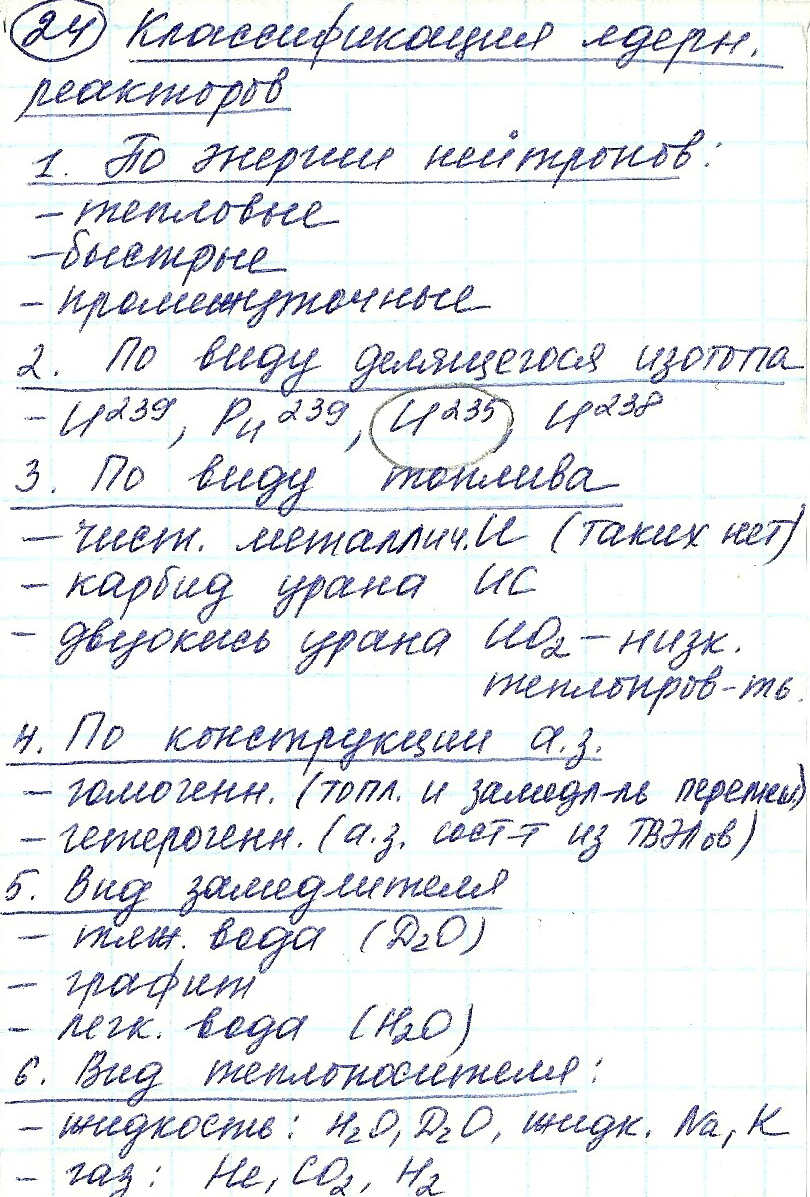 24 Классификация ядерн.
реакторов
1. По энергии нейтронов:
- тепловые
- быстрые
- промежуточные
2. По виду делящегося изотопа
- U²³⁹, Pu²³⁹, U²³⁵, U²³⁸
3. По виду топлива
- чист. металлич. U (таких нет)
- карбид урана UC
- двуокись урана UO₂ - низк.
теплопров-ть.
4. По конструкции а.з.
- гомогенн. (топл. и замедл-ль перемеш.)
- гетерогенн. (а.з. сост-т из ТВЭЛов)
5. Вид замедлителя
- тяж. вода (D₂O)
- графит
- легк. вода (H₂O)
6. Вид теплоносителя:
- жидкость: H₂O, D₂O, жидк. Na, K
- газ: He, CO₂, H₂